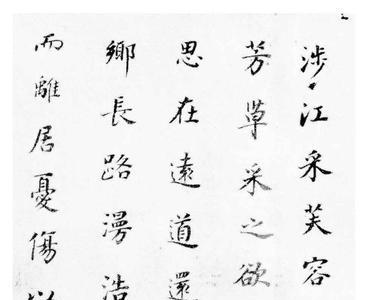 涉江采芙容
芳草采之欲
思在遠道還
鄉長路漫浩
而離居憂傷